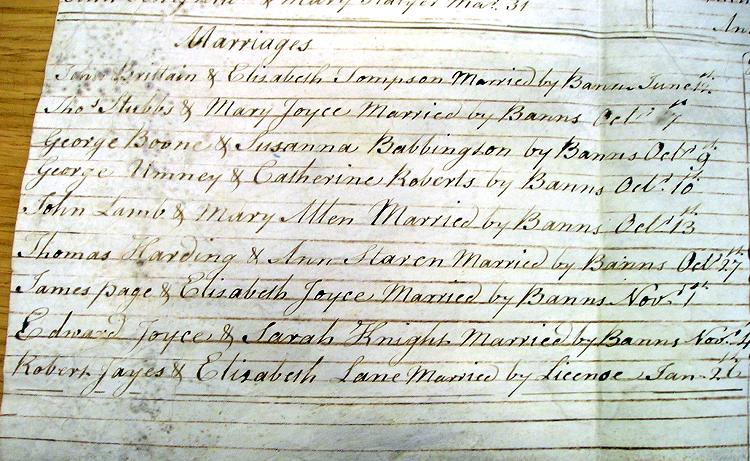 & Mary Mar. 31
An
Marriages
John Brittain & Elisabeth Tompson Married by Banns June 12.th
Tho.s Stubbs & Mary Joyce Married by Banns Oct.r 7.th
George Boone & Susanna Babbington by Banns Oct.r 9.th
George Umney & Catherine Roberts by Banns Oct.r 10.th
John Lamb & Mary Allen Married by Banns Oct.r 13.th
Thomas Harding & Ann Married by Banns Oct.r 27.th
James page & Elisabeth Joyce Married by Banns Nov.r 1.st
Edward Joyce & Sarah Knight Married by Banns Nov.r 4
Robert Jayes & Elisabeth Lane Married by License Jan.